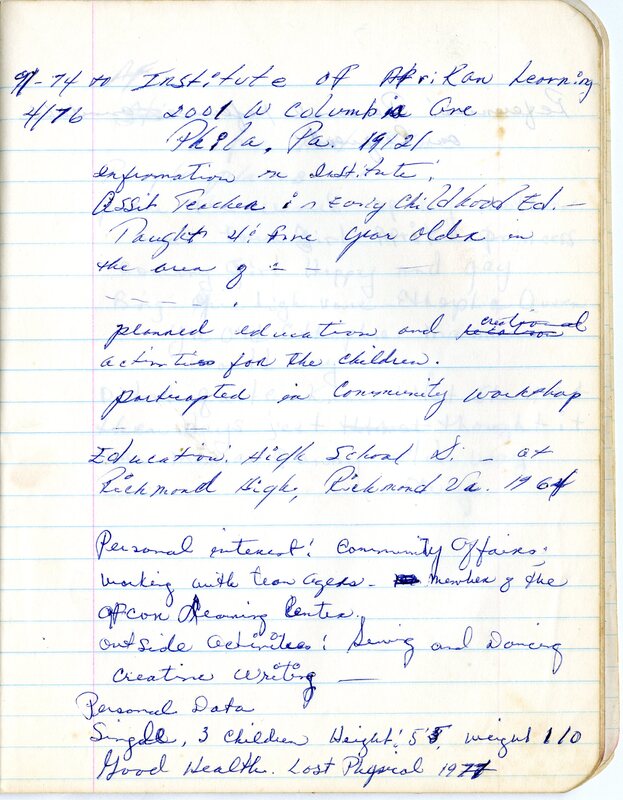 9-74 to Institute of Afrikan Learning
4/76 2001 W Columbia Ave
Phila, Pa. 19121
Information on Institute:
Assit Teacher in Early Childhood Ed. -
Taught 4 & five year olden in
the area of - - -
- - - - .
planned education and creational
activities for the children.
particapted in Community workshop
- -
Education: High School D. - at
Richmond High, Richmond Va. 1964
Personal interest: Community Affairs,
working with teen agers - member of the
afcon Learning Center,
outside activities: Sewing and Dancing
Creative Writing —
Personal Data
Single, 3 children Height: 5'5, weight 110
Good Health. Last Physical 1977